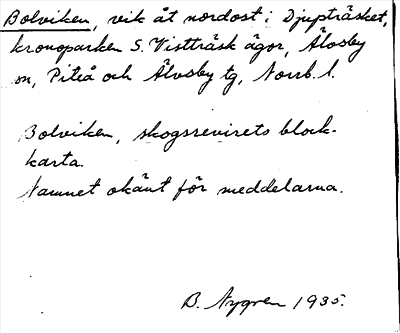 Bolviken, vik åt nordost i Djupträsket,
kronoparken S. Vistträsk ägor, Älvsby
sn, Piteå och Älvsby tg, Norrb. l.
Bolviken, skogsrevirets block-
karta.
Namnet okänt för meddelarna.
B. Nygren 1935.